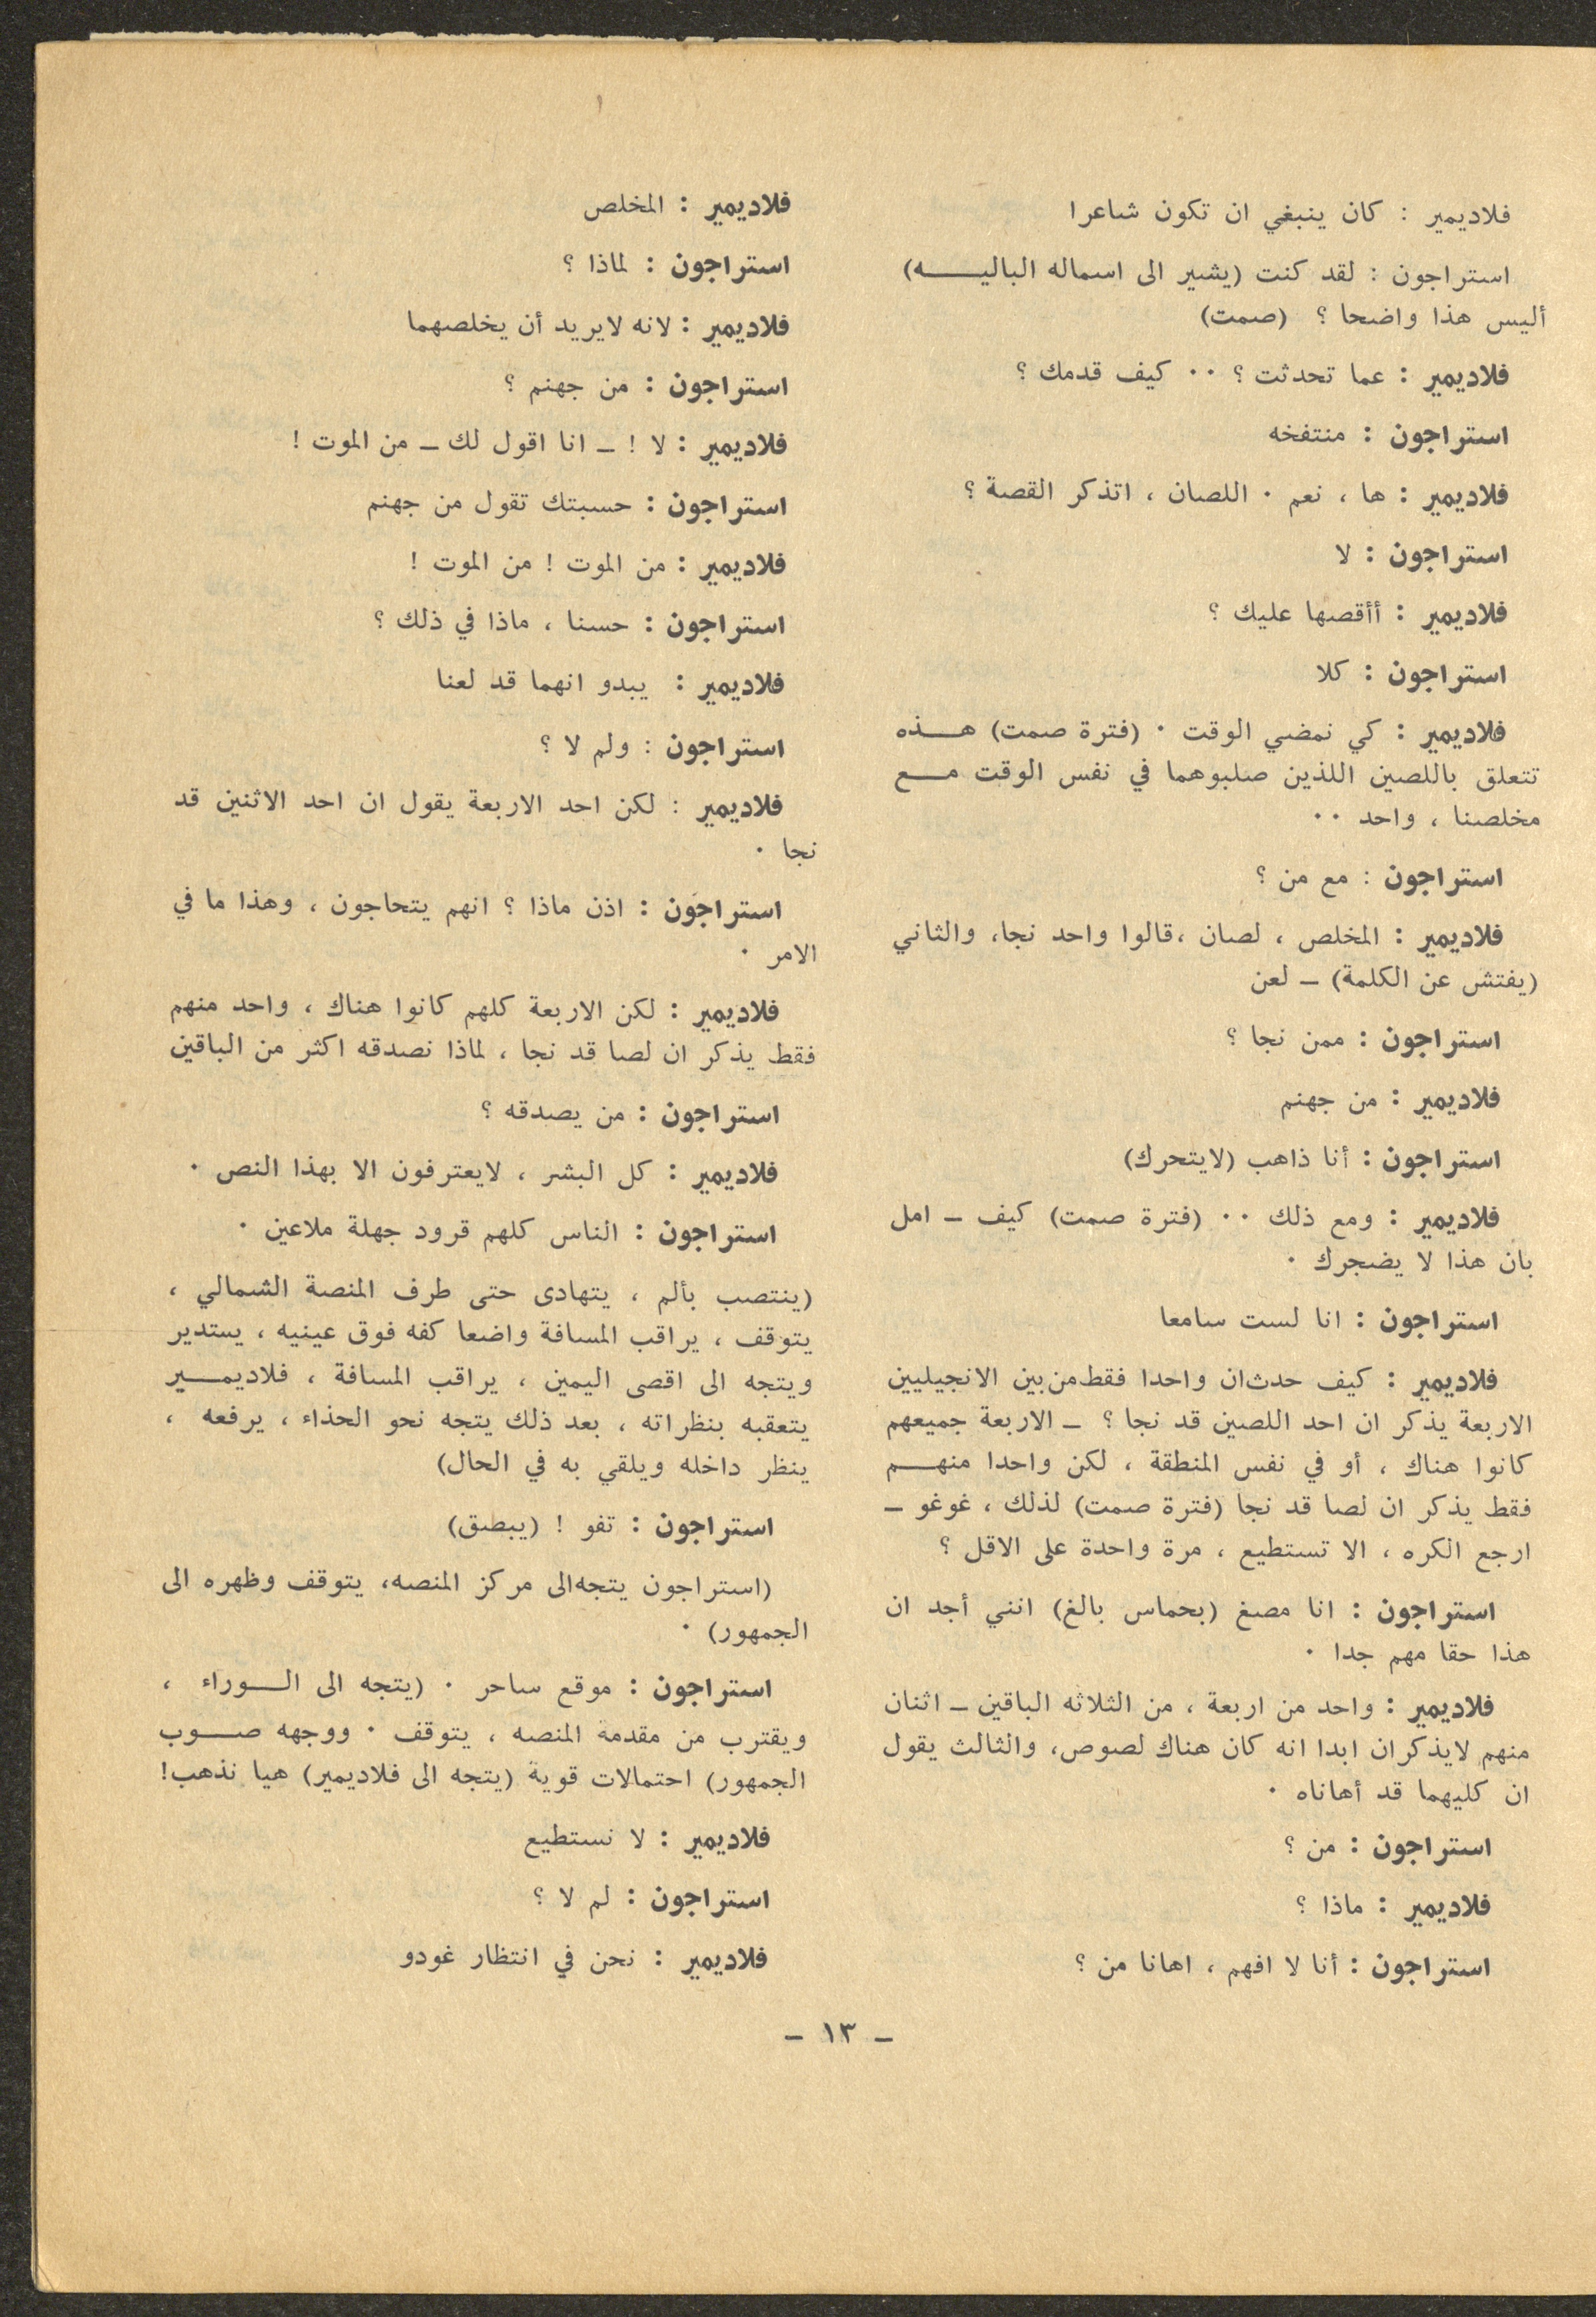 فلاديمير : كان ينبغي ان تكون شاعرا
استراجون : لقد كنت (يشير الى اسماله الباليـــه)
أليس هذا واضحا ؟ (صمت)
فلاديمير : عما تحدثت ؟ ٠٠ كيف قدمك ؟
استراجون : منتفخه
فلاديمير : ها ، نعم ٠ اللصان ، اتذكر القصة ؟
استراجون : لا
فلاديمير : أأقصها عليك ؟
استراجون : كلا
فلاديمير : كي نمضي الوقت ٠ (فترة صمت) هـــذه
تتعلق باللصين اللذين صلبوهما في نفس الوقت مـــع
مخلصنا ، واحد ٠٠
استراجون : مع من ؟
فلاديمير : المخلص ، لصان ،قالوا واحد نجا، والثاني
(يفتش عن الكلمة) ــ لعن
استراجون : ممن نجا ؟
فلاديمير : من جهنم
استراجون : أنا ذاهب (لايتحرك)
فلاديمير : ومع ذلك ٠٠ (فترة صمت) كيف ــ امل
بان هذا لا يضجرك ٠
استراجون : انا لست سامعا
فلاديمير : كيف حدث ان واحدا فقط من بين الانجيليين
الاربعة يذكر ان احد اللصين قد نجا ؟ ــ الاربعة جميعهم
كانوا هناك ، أو في نفس المنطقة ، لكن واحدا منهـــم
فقط يذكر ان لصا قد نجا (فترة صمت) لذلك ، غوغو ــ
ارجع الكره ، الا تستطيع ، مرة واحدة على الاقل ؟
استراجون : انا مصغ (بحماس بالغ) انني أجد ان
هذا حقا مهم جدا ٠
فلاديمير : واحد من اربعة ، من الثلاثه الباقين ــ اثنان
منهم لايذكران ابدا انه كان هناك لصوص، والثالث يقول
ان كليهما قد أهاناه ٠
استراجون : من ؟
فلاديمير : ماذا ؟
استراجون : أنا لا افهم ، اهانا من ؟
فلاديمير : المخلص
استراجون : لماذا ؟
فلاديمير : لانه لايريد أن يخلصهما
استراجون : من جهنم ؟
فلاديمير : لا ! ــ انا اقول لك ــ من الموت !
استراجون : حسبتك تقول من جهنم
فلاديمير : من الموت ! من الموت !
استراجون : حسنا ، ماذا في ذلك ؟
فلاديمير : يبدو انهما قد لعنا
استراجون : ولم لا ؟
فلاديمير : لكن احد الاربعة يقول ان احد الاثنين قد
نجا ٠
استراجون : اذن ماذا ؟ انهم يتحاجون ، وهذا ما في
الامر ٠
فلاديمير : لكن الاربعة كلهم كانوا هناك ، واحد منهم
فقط يذكر ان لصا قد نجا ، لماذا نصدقه اكثر من الباقين
استراجون : من يصدقه ؟
فلاديمير : كل البشر ، لايعترفون الا بهذا النص ٠
استراجون : الناس كلهم قرود جهلة ملاعين ٠
(ينتصب بألم ، يتهادى حتى طرف المنصة الشمالي ،
يتوقف ، يراقب المسافة واضعا كفه فوق عينيه ، يستدير
ويتجه الى اقصى اليمين ، يراقب المسافة ، فلاديمـــير
يتعقبه بنظراته ، بعد ذلك يتجه نحو الحذاء ، يرفعه ،
ينظر داخله ويلقي به في الحال)
استراجون : تفو ! (يبصق)
(استراجون يتجه الى مركز المنصه، يتوقف وظهره الى
الجمهور) ٠
استراجون : موقع ساحر ٠ (يتجه الى الـــوراء ،
ويقترب من مقدمة المنصه ، يتوقف ٠ ووجهه صـــوب
الجمهور) احتمالات قوية (يتجه الى فلاديمير) هيا نذهب!
فلاديمير : لا نستطيع
استراجون : لم لا ؟
فلاديمير : نحن في انتظار غودو
ــ ١٣ ــ